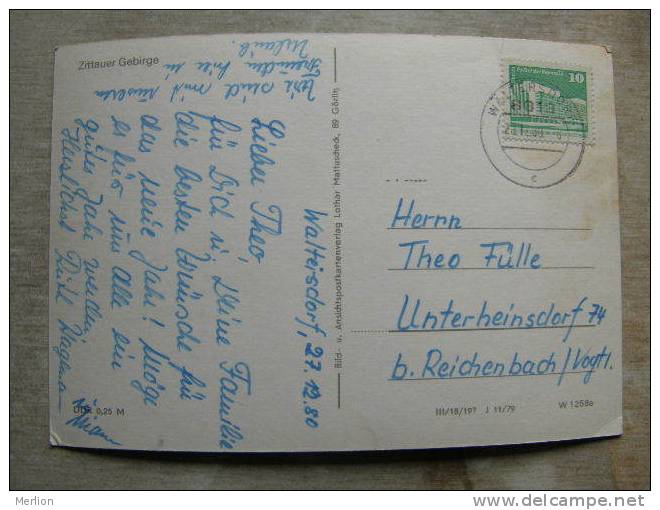 Zittauer Gebirge
Waltersdorf, 27.12.80
Lieber Theo,
für Dich u. Deine Familie
die besten Wünsche für
das neue Jahr! Möge
es für uns alle ein
gutes Jahr werden.
Herzlichst
Wir sind mit unseren
Freunden hier in
Urlaub.
DDR 0,25 M
Bild- u. Ansichtspostkartenverlag Lothar Mattuscheck, 89 Görlitz
10
Herrn
Theo Fülle
Unterheinsdorf 74
b. Reichenbach/Vogtl.
III/18/197 J 11/79
W 1258a
Merlion
delcampe.net